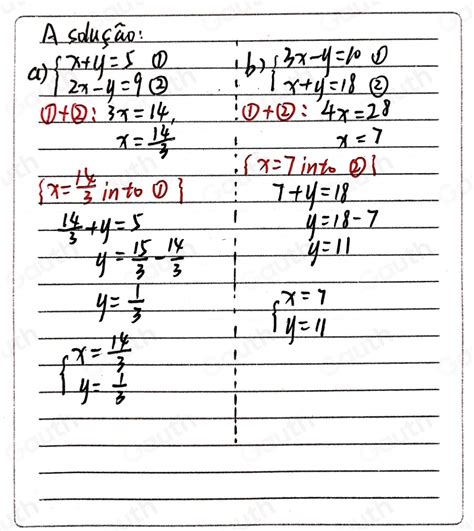 A solução:
a) { x+y=5 ①
2x-y=9 ②
①+②: 3x=14,
x=14/3
{x=14/3 into ①}
14/3+y=5
y=15/3-14/3
y=1/3
{ x=14/3
y=1/3
b) { 3x-y=10 ①
x+y=18 ②
①+②: 4x=28
x=7
{x=7 into ②}
7+y=18
y=18-7
y=11
{ x=7
y=11
Gauth